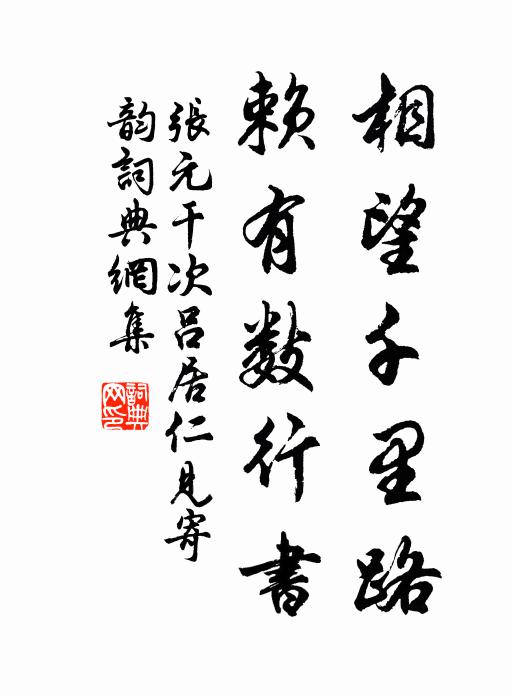 相望千里路
賴有数行書
張元干次呂居仁見寄
韵詞典網集
詞典网印